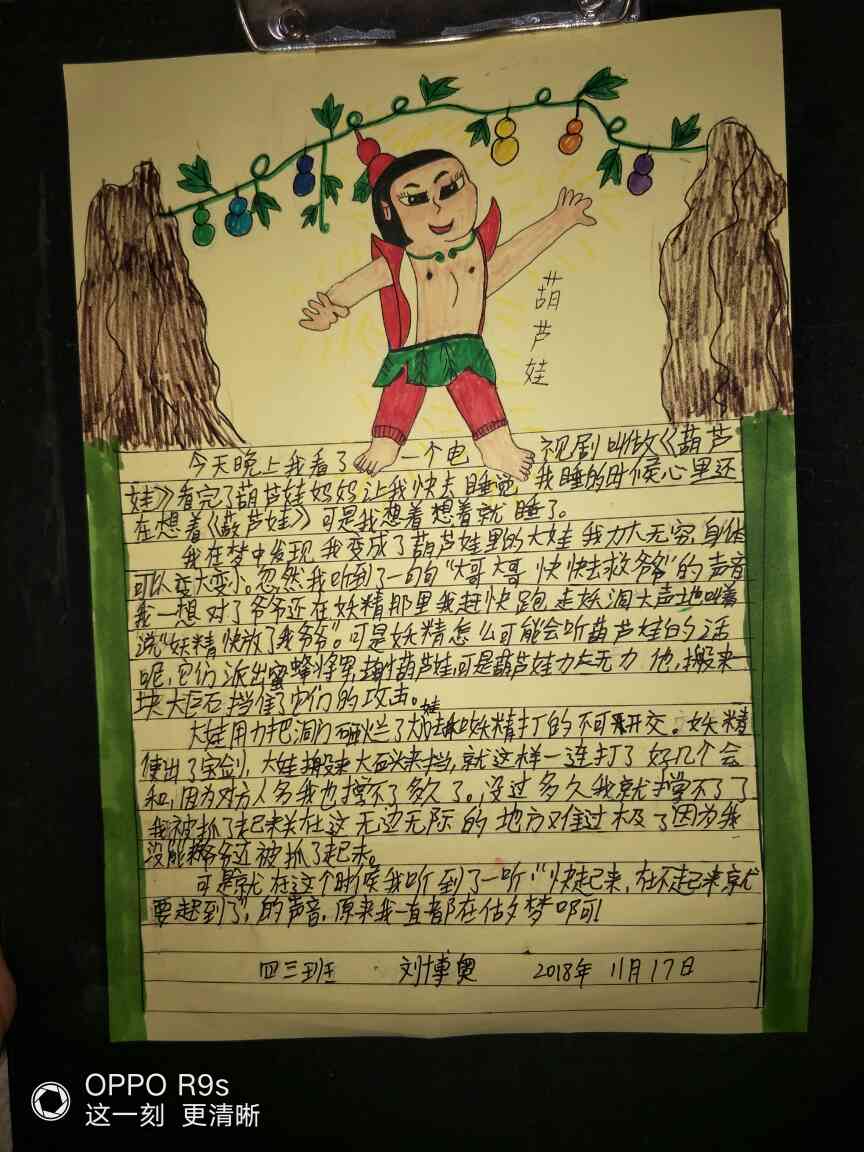 葫芦娃
今天晚上我看了一个电视剧叫做《葫芦
娃》看完了葫芦娃妈妈让我快去睡觉，我睡的时候心里还
在想着《葫芦娃》可是我想着想着就睡了。
我在梦中发现我变成了葫芦娃里的大娃我力大无穷，身体
可以变大变小。忽然我听到了一句句“大哥大哥快快去救爷爷”的声音
我一想对了爷爷还在妖精那里我赶快跑走妖洞大声地叫着
说“妖精快放了我爷爷”。可是妖精怎么可能会听葫芦娃的话
呢，它们派出蜜蜂将军葫芦娃可是葫芦娃力大无力他，搬来
块大巨石挡住了它们的攻击。
大娃用力把洞门砸烂了大娃和妖精打的不可开交。妖精
使出了宝剑，大娃搬来大石头来挡，就这样一连打了好几个会
和，因为对方人多我也撑不了多久了。没过多久我就撑不了了
我被抓了起来关在这无边无际的地方难过极了因为我
没能救爷爷还被抓了起来。
可是就在这个时候我听到了一听，“快起来，在不起来就
要迟到了”，的声音，原来我一直都在做梦啊可!
四三班 刘博奥 2018年11月17日
OPPO R9s
这一刻 更清晰